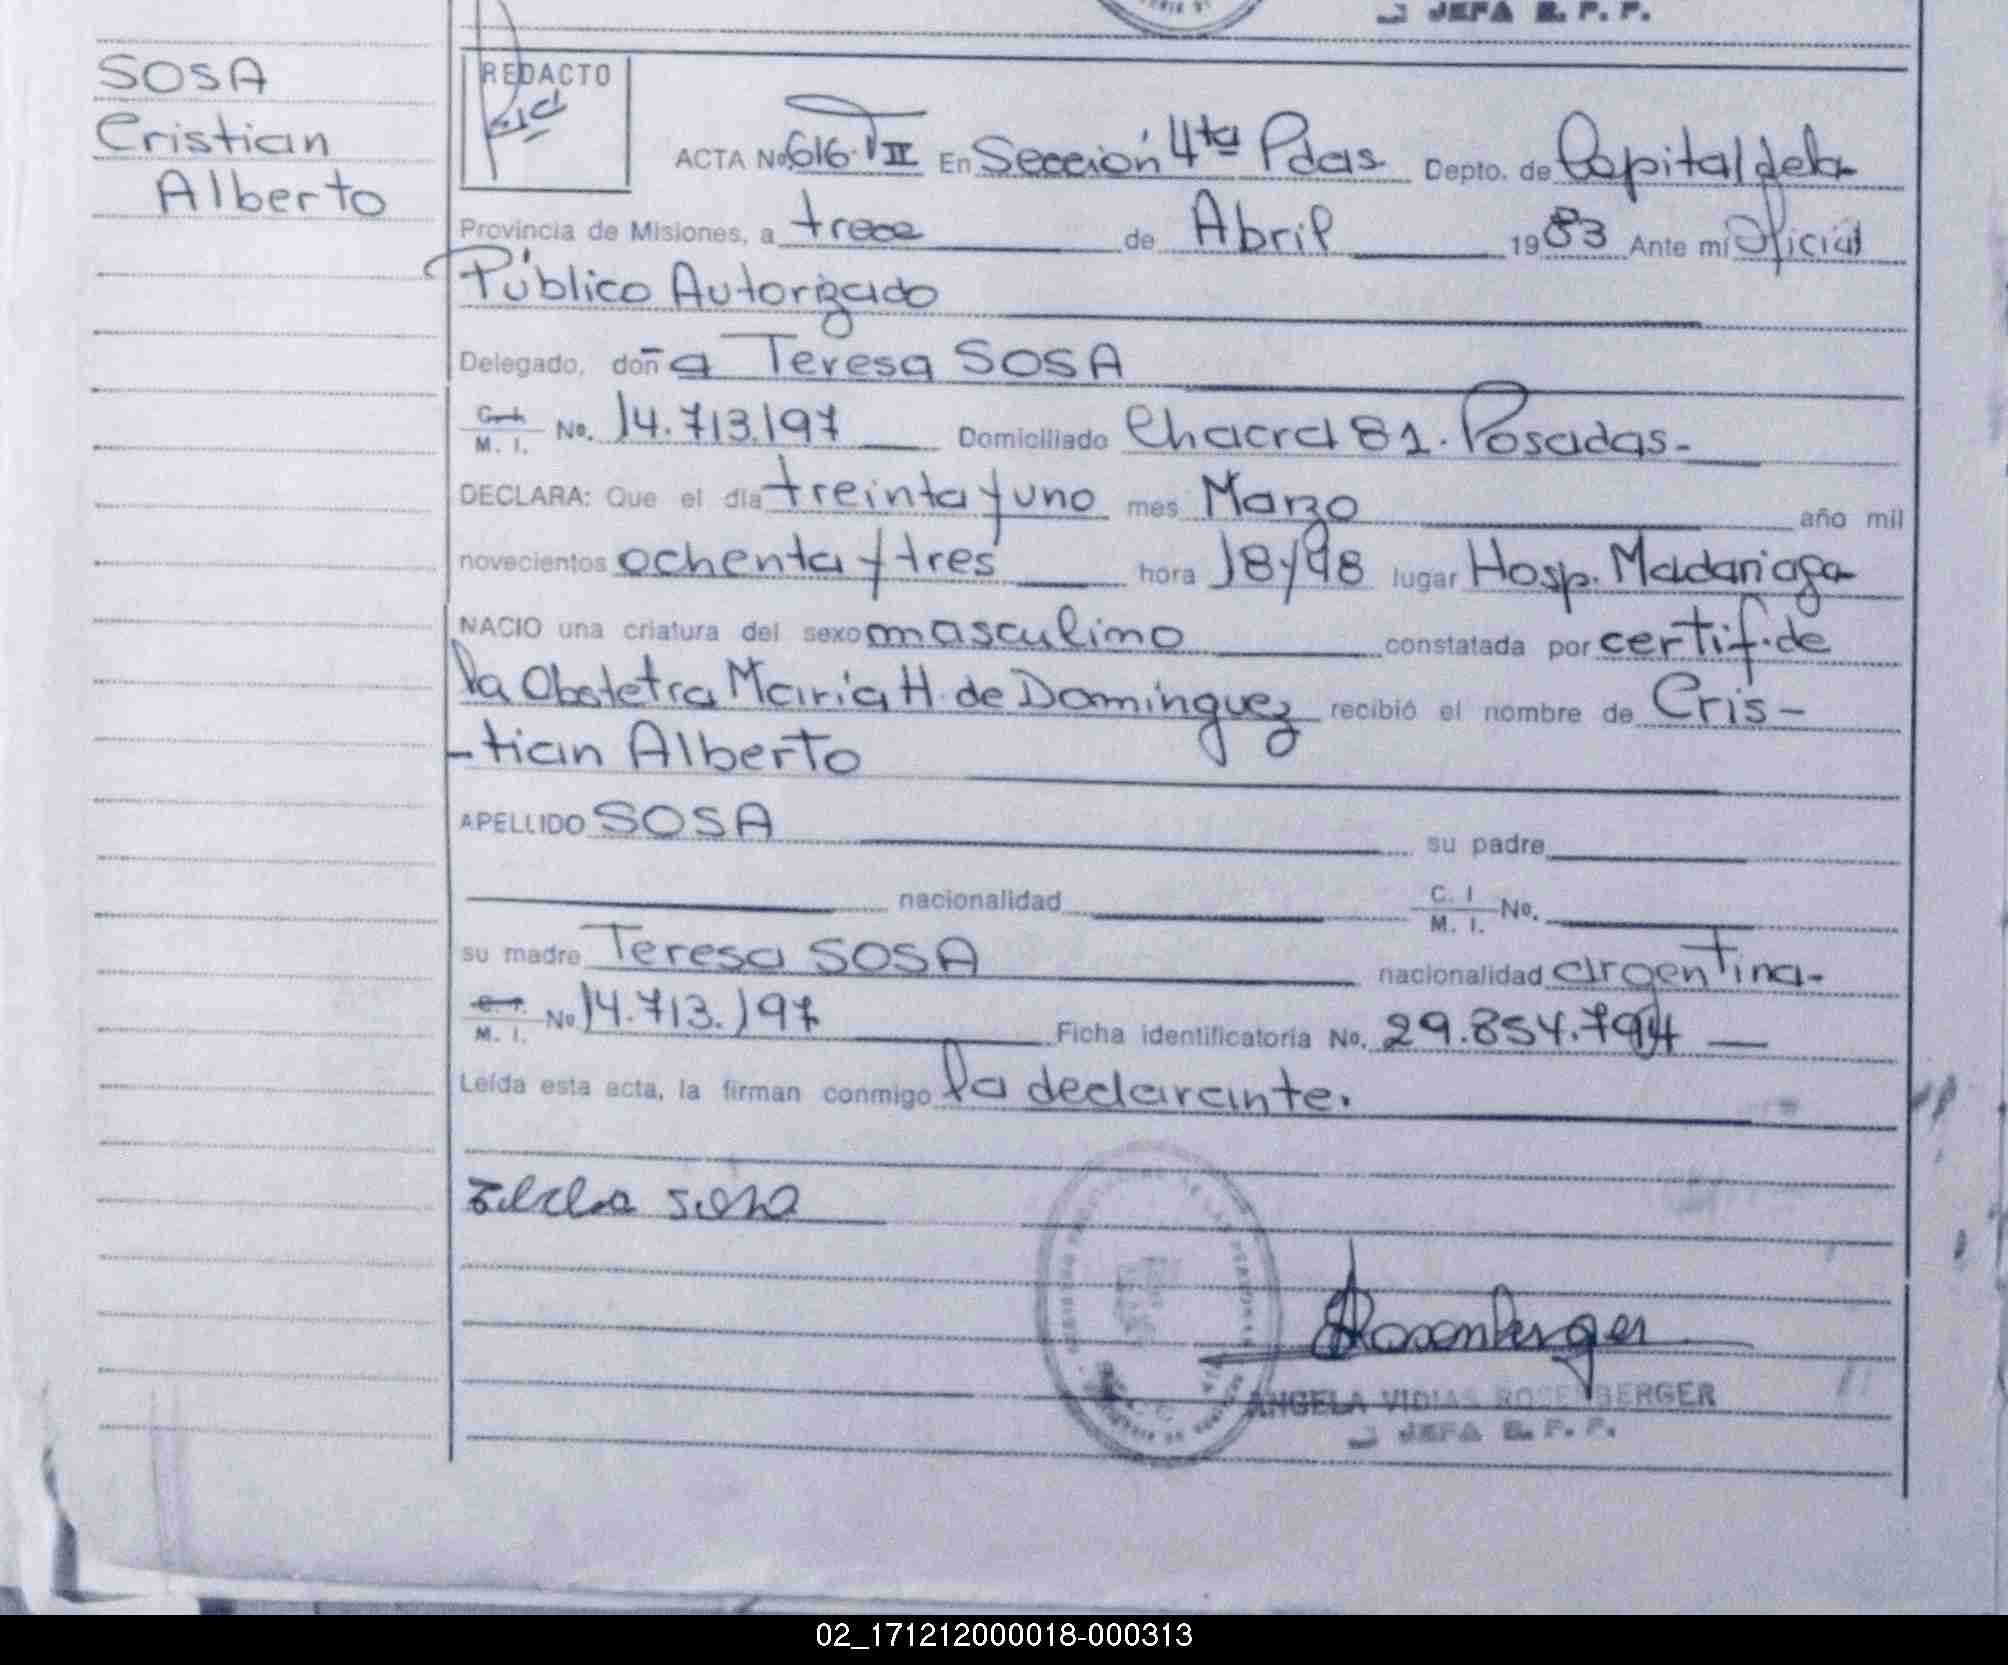 JEFA E. P. P.
SOSA
Cristian
Alberto
REDACTO
ACTA No 616. T II En Sección 4ta Pdas. Depto. de Capital dela
Provincia de Misiones, a trece de Abril 1983 Ante mí Oficial
Público Autorizado
Delegado, doña Teresa SOSA
M. I. No. 14.713.197 Domiciliado Chacra 81. Posadas-
DECLARA: Que el día treinta y uno mes Marzo año mil
novecientos ochenta y tres hora lugar Hosp. Madariaga
NACIO una criatura del sexo masculino constatada por certif. de
la Obstetra María H. de Domínguez recibió el nombre de Cris-
-tian Alberto
APELLIDO SOSA su padre
nacionalidad C. I. M. I. No.
su madre Teresa SOSA nacionalidad argentina-
M. I. No 14.713.197 Ficha identificatoria No. 29.854.794
Leída esta acta, la firman conmigo la declarante.
Rosenberger
ANGELA VIDIAS ROSENBERGER
JEFA E. P. P.
02_171212000018-000313